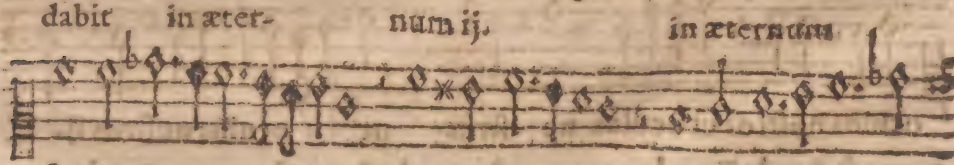 dabit in æter- num ij. in æternum